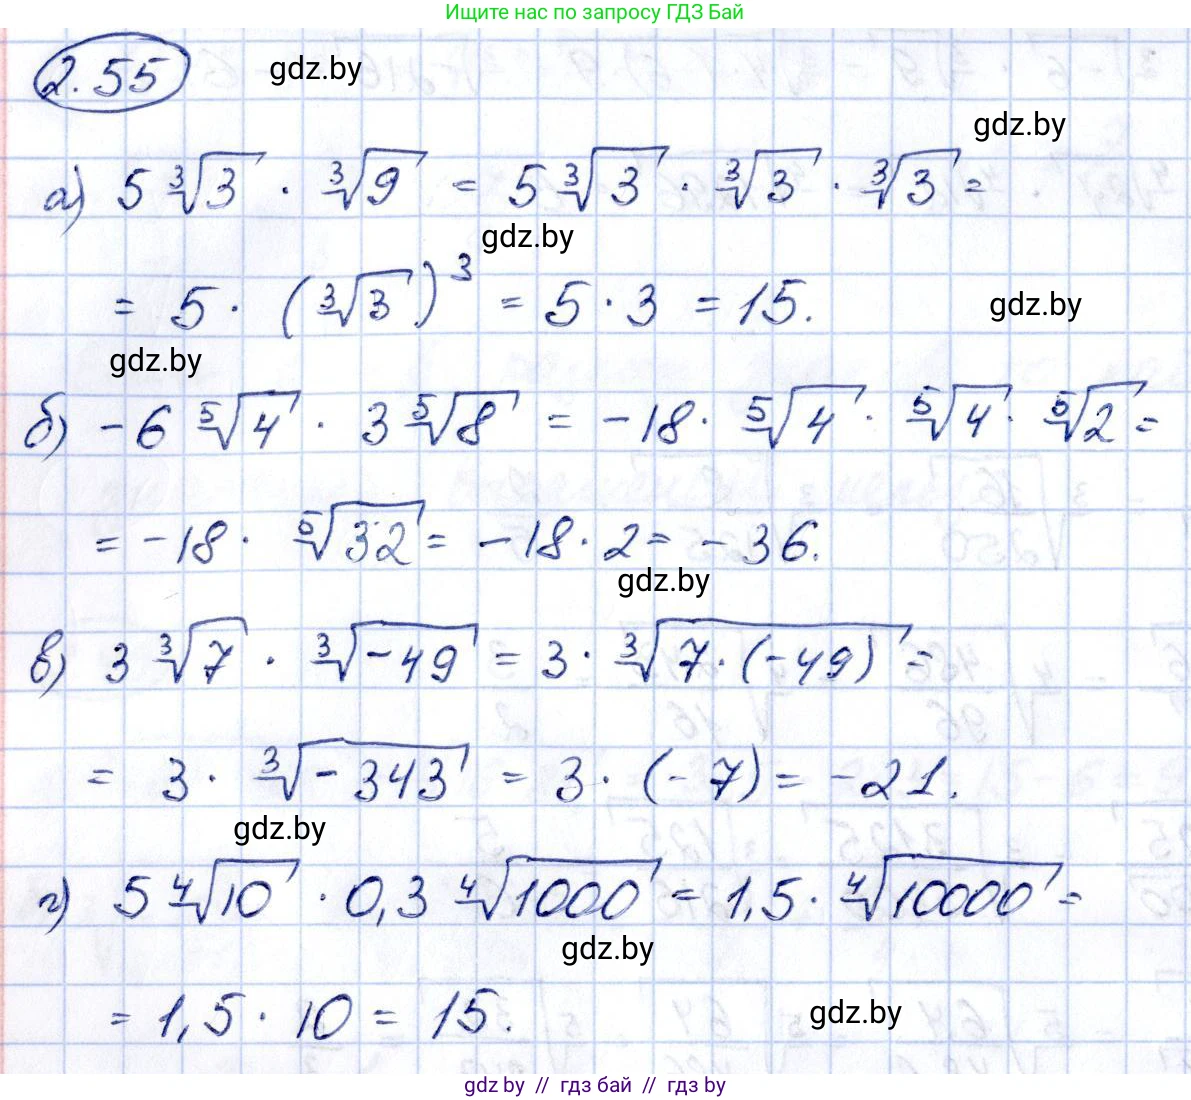 Ищите нас по запросу ГДЗ Бай
2.55 gdz.by
gdz.by
а) 5 ∛3 · ∛9 = 5 ∛3 · ∛3 · ∛3 =
gdz.by
= 5 · (∛3)³ = 5 · 3 = 15.
gdz.by
gdz.by
б) -6 ⁵√4 · 3 ⁵√8 = -18 · ⁵√4 · ⁵√4 · ⁵√2 =
= -18 · ⁵√32 = -18 · 2 = -36.
gdz.by
в) 3 ∛7 · ∛-49 = 3 · ∛7·(-49) =
= 3 · ∛-343 = 3 · (-7) = -21.
gdz.by
г) 5 ∜10 · 0,3 ∜1000 = 1,5 · ∜10000 =
gdz.by
= 1,5 · 10 = 15.
gdz.by
gdz by // гдз бай // гдз by